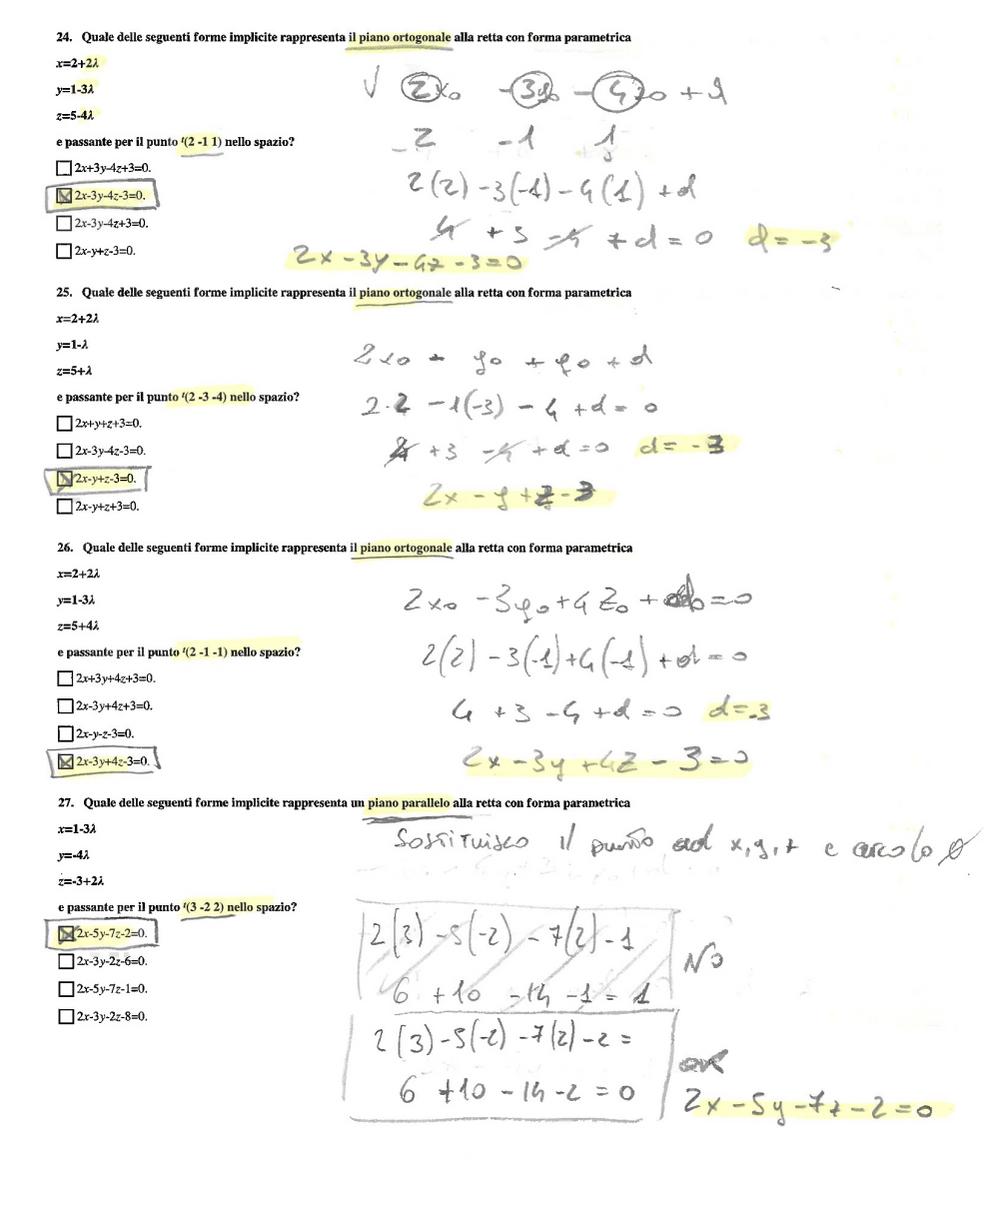 24. Quale delle seguenti forme implicite rappresenta il piano ortogonale alla retta con forma parametrica
x=2+2λ
y=1-3λ
z=5-4λ
√ 2x₀ -3y₀ -4z₀ + d
-2 -1 1
e passante per il punto ᵗ(2 -1 1) nello spazio?
2x+3y-4z+3=0.
2x-3y-4z-3=0.
2x-3y-4z+3=0.
2x-y+z-3=0.
2(2) -3(-1) -4(1) +d
4 +3 -4 +d = 0 d = -3
2x -3y -4z -3 = 0
25. Quale delle seguenti forme implicite rappresenta il piano ortogonale alla retta con forma parametrica
x=2+2λ
y=1-λ
z=5+λ
2x₀ - y₀ + z₀ + d
e passante per il punto ᵗ(2 -3 -4) nello spazio?
2·2 -1(-3) -4 +d = 0
2x+y+z+3=0.
2x-3y-4z-3=0.
2x-y+z-3=0.
2x-y+z+3=0.
4 +3 -4 +d =0 d= -3
2x -y +z -3
26. Quale delle seguenti forme implicite rappresenta il piano ortogonale alla retta con forma parametrica
x=2+2λ
y=1-3λ
z=5+4λ
2x₀ -3y₀ +4z₀ + =0
e passante per il punto ᵗ(2 -1 -1) nello spazio?
2(2) -3(-1) +4(-1) +d = 0
2x+3y+4z+3=0.
2x-3y+4z+3=0.
2x-y-z-3=0.
2x-3y+4z-3=0.
4 +3 -4 +d =0 d=-3
2x -3y +4z -3 =0
27. Quale delle seguenti forme implicite rappresenta un piano parallelo alla retta con forma parametrica
x=1-3λ
y=-4λ
z=-3+2λ
Sostituisco il punto ad x,y,z e cerco lo 0
e passante per il punto ᵗ(3 -2 2) nello spazio?
2x-5y-7z-2=0.
2x-3y-2z-6=0.
2x-5y-7z-1=0.
2x-3y-2z-8=0.
2(3) -5(-2) -7(2) -1
6 +10 -14 -1 = 1
NO
2(3) -5(-2) -7(2) -2 =
6 +10 -14 -2 = 0
OK
2x -5y -7z -2 =0